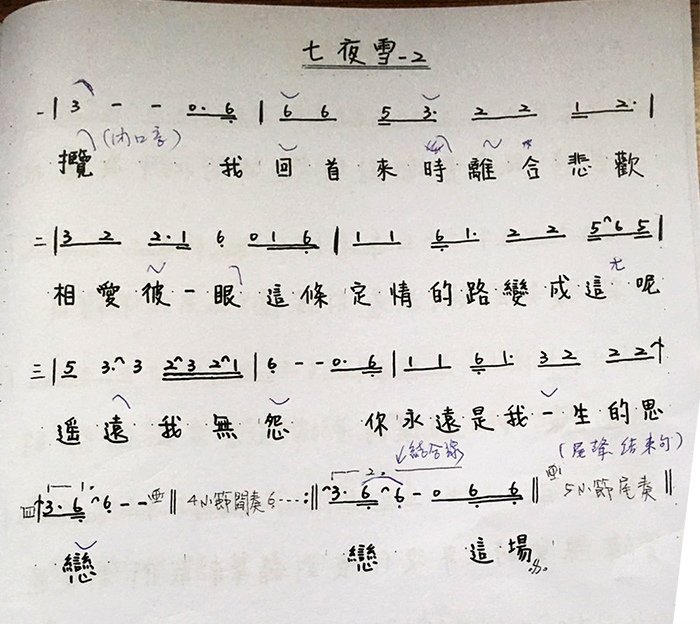 七夜雪-2
一 | 3 - - 0. 6 | 6 6 5 3. 2 2 1 2. |
攬 (閉口音) 我 回 首 來 時 離 合 悲 歡
二 | 3 2 2. 1 6 0 1 6 | 1 1 6 1. 2 2 5 ^6 5 |
相 愛 彼 一 眼 這 條 定 情 的 路 變 成 這 呢
三 | 5 3. ^3 2^3 2^1 | 6 - - 0. 6 | 1 1 6 1. 3 2 2 2
遙 遠 我 無 怨 你 永 遠 是 我 一 生 的 思
結合線 (尾聲 結束句)
四 1. 3. 6 ^6 - - ‖ 4小節間奏 6 ···· :‖ 2. ^3. 6 ^6 - 0 6 6 ‖ 5小節尾奏 ‖
戀 戀 這 場